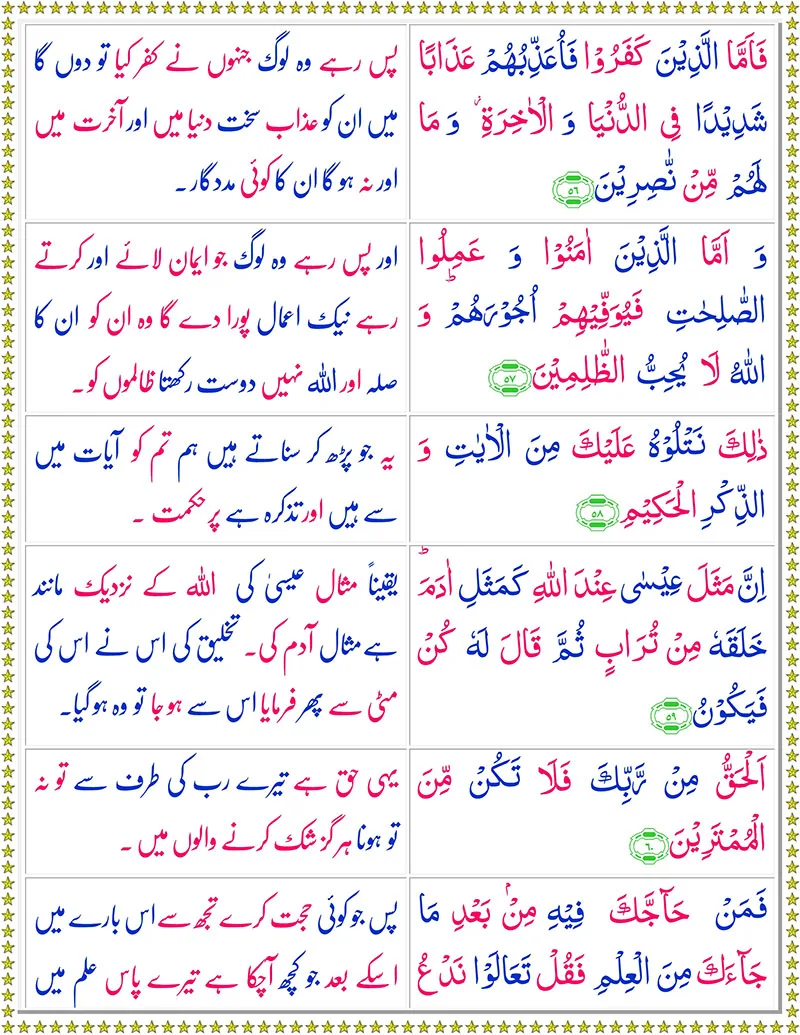 فَاَمَّا الَّذِيْنَ كَفَرُوْا فَاُعَذِّبُهُمْ عَذَابًا
شَدِيْدًا فِي الدُّنْيَا وَ الْاٰخِرَةِ ۫ وَ مَا
لَهُمْ مِّنْ نّٰصِرِيْنَ ٥٦
پس رہے وہ لوگ جنہوں نے کفر کیا تو دوں گا
میں ان کو عذاب سخت دنیا میں اور آخرت میں
اور نہ ہو گا ان کا کوئی مددگار ۔
وَ اَمَّا الَّذِيْنَ اٰمَنُوْا وَ عَمِلُوا
الصّٰلِحٰتِ فَيُوَفِّيْهِمْ اُجُوْرَهُمْ ؕ وَ
اللّٰهُ لَا يُحِبُّ الظّٰلِمِيْنَ ٥٧
اور پس رہے وہ لوگ جو ایمان لائے اور کرتے
رہے نیک اعمال پورا دے گا وہ ان کو ان کا
صلہ اور اللہ نہیں دوست رکھتا ظالموں کو ۔
ذٰلِكَ نَتْلُوْهُ عَلَيْكَ مِنَ الْاٰيٰتِ وَ
الذِّكْرِ الْحَكِيْمِ ٥٨
یہ جو پڑھ کر سناتے ہیں ہم تم کو آیات میں
سے ہیں اور تذکرہ ہے پر حکمت ۔
اِنَّ مَثَلَ عِيْسٰى عِنْدَ اللّٰهِ كَمَثَلِ اٰدَمَ ؕ
خَلَقَهٗ مِنْ تُرَابٍ ثُمَّ قَالَ لَهٗ كُنْ
فَيَكُوْنُ ٥٩
یقیناً مثال عیسیٰ کی اللہ کے نزدیک مانند
ہے مثال آدم کی۔ تخلیق کی اس نے اس کی
مٹی سے پھر فرمایا اس سے ہو جا تو وہ ہوگیا۔
اَلْحَقُّ مِنْ رَّبِّكَ فَلَا تَكُنْ مِّنَ
الْمُمْتَرِيْنَ ٦٠
یہی حق ہے تیرے رب کی طرف سے تو نہ
تو ہونا ہرگز شک کرنے والوں میں ۔
فَمَنْ حَآجَّكَ فِيْهِ مِنْۢ بَعْدِ مَا
جَآءَكَ مِنَ الْعِلْمِ فَقُلْ تَعَالَوْا نَدْعُ
پس جو کوئی حجت کرے تجھ سے اس بارے میں
اسکے بعد جو کچھ آچکا ہے تیرے پاس علم میں